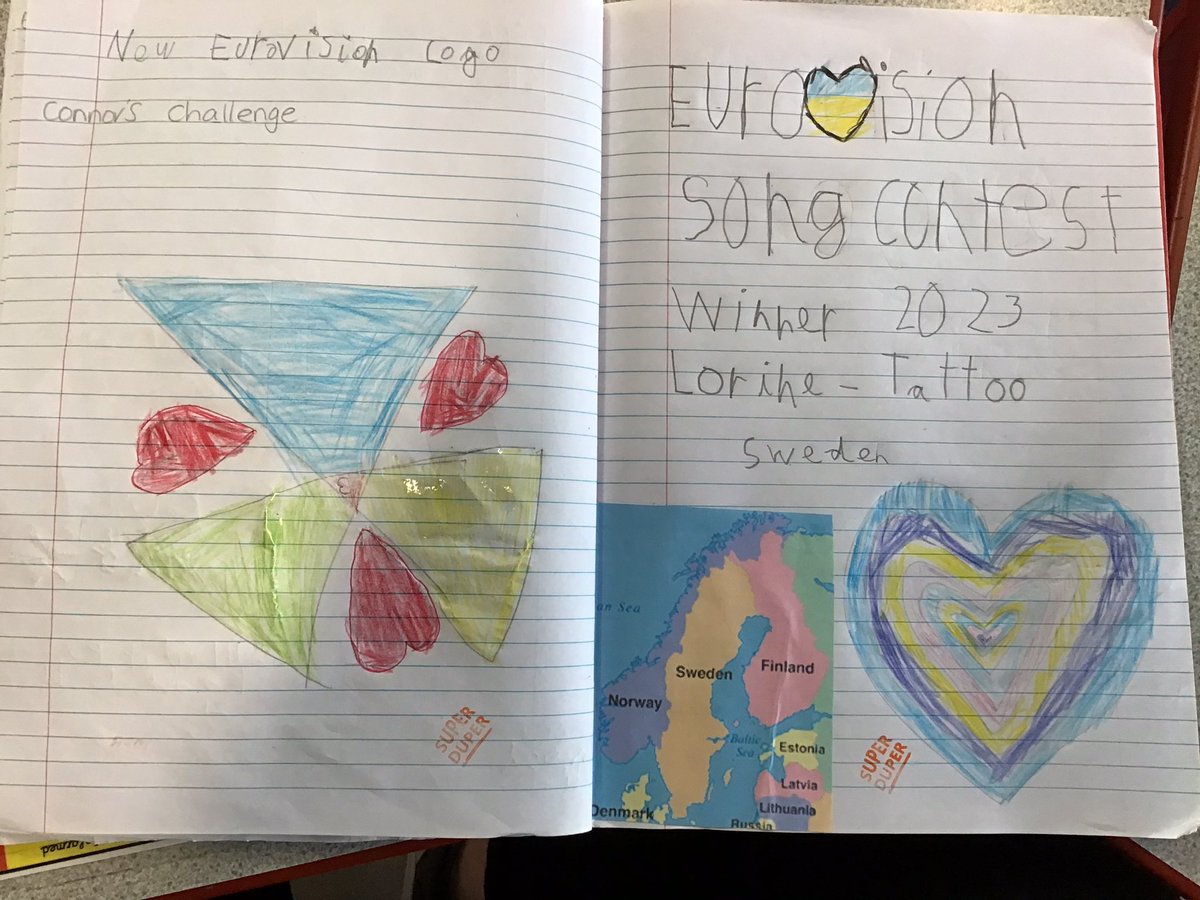 New Eurovision Logo
Connor's Challenge
SUPER
DUPER
Eurovision
Song Contest
Winner 2023
Lorine - Tattoo
Sweden
an Sea
Sweden
Finland
Norway
Baltic
Sea
Estonia
Latvia
Denmark
Lithuania
Russia
SUPER
DUPER